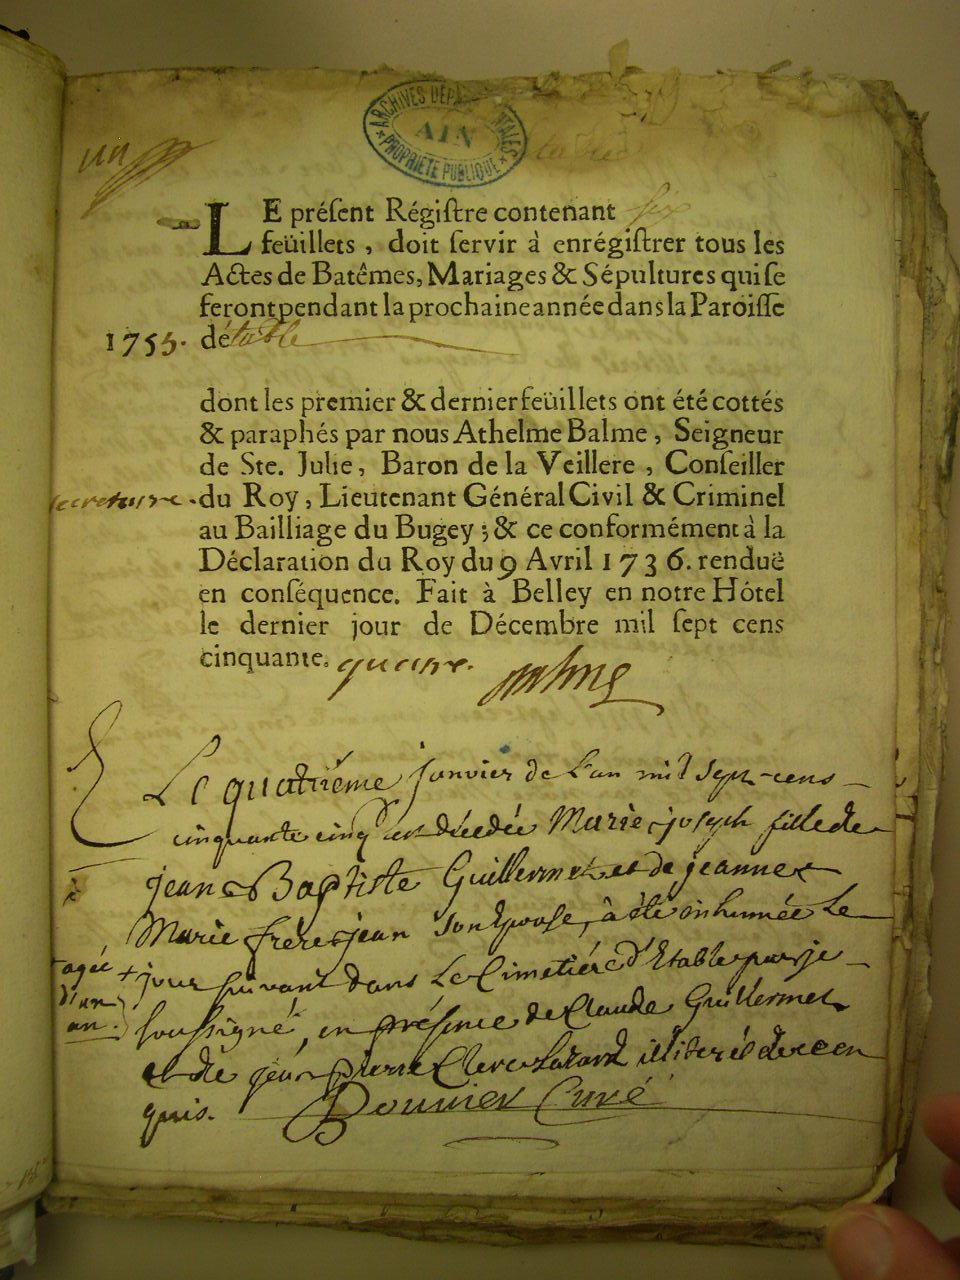 un
ARCHIVES DÉPARTEMENTALES
AIN
PROPRIÉTÉ PUBLIQUE
LE préſent Régiſtre contenant six
feüillets, doit ſervir à enrégiſtrer tous les
Actes de Batêmes, Mariages & Sépultures qui ſe
feront pendant la prochaine année dans la Paroiſſe
1755. détable
dont les premier & dernier feüillets ont été cottés
& paraphés par nous Athelme Balme, Seigneur
de Ste. Julie, Baron de la Veillere, Conſeiller
secretaire. du Roy, Lieutenant Général Civil & Criminel
au Bailliage du Bugey; & ce conformément à la
Déclaration du Roy du 9 Avril 1736. renduë
en conſéquence. Fait à Belley en notre Hôtel
le dernier jour de Décembre mil ſept cens
cinquante. quatre. Balme
Le quatriéme janvier de l'an mil sept cens
cinquante cinq est décédée Marie joseph fille de
jean Baptiste Guillermet et de jeanne
Marie frere jean son Epouse, à été inhumée le
agée d'un an. + jour suivant dans le Cimetiére d'Etable par je
soussigné, en présence de Claude Guillermet
et de jean pierre Clerc illiteré de ce en
quis. Curé